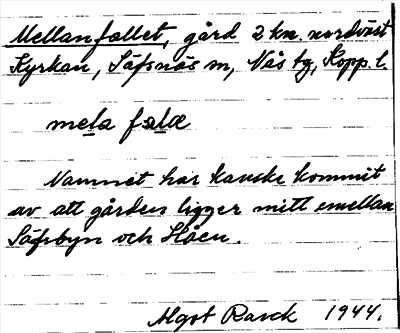 Mellanfallet, gård 2 km. nordväst
Kyrkan, Säfsnäs sn, Nås tg, Kopp. l.
mela falæ
Namnet har kanske kommit
av att gården ligger mitt emellan
Säfsbyn och Håen.
Algot Rasck 1944.